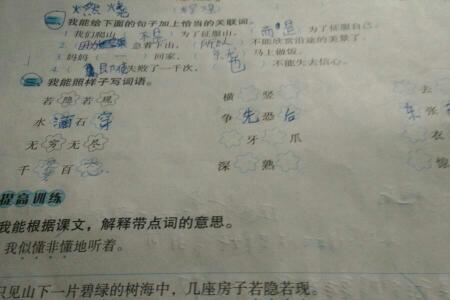 燃 烧
二、我能给下面的句子加上恰当的关联词。
1. 我们爬山 不是 为了征服山, 而是 为了征服自己。
2. 因为 急着下山, 所以 不能欣赏沿途的美景了。
3. 妈妈 回家, 马上做饭。
4. 失败了一千次, 也 不能失去信心。
三、我能照样子写词语。
若隐若现 横 竖 去
水滴石穿 争先恐 东张
无穷无尽 牙 爪 衣
千 百 深 熟
提高训练
我能根据课文，解释带点词的意思。
我似懂非懂地听着。
只见山下一片碧绿的树海中，几座房子若隐若现。